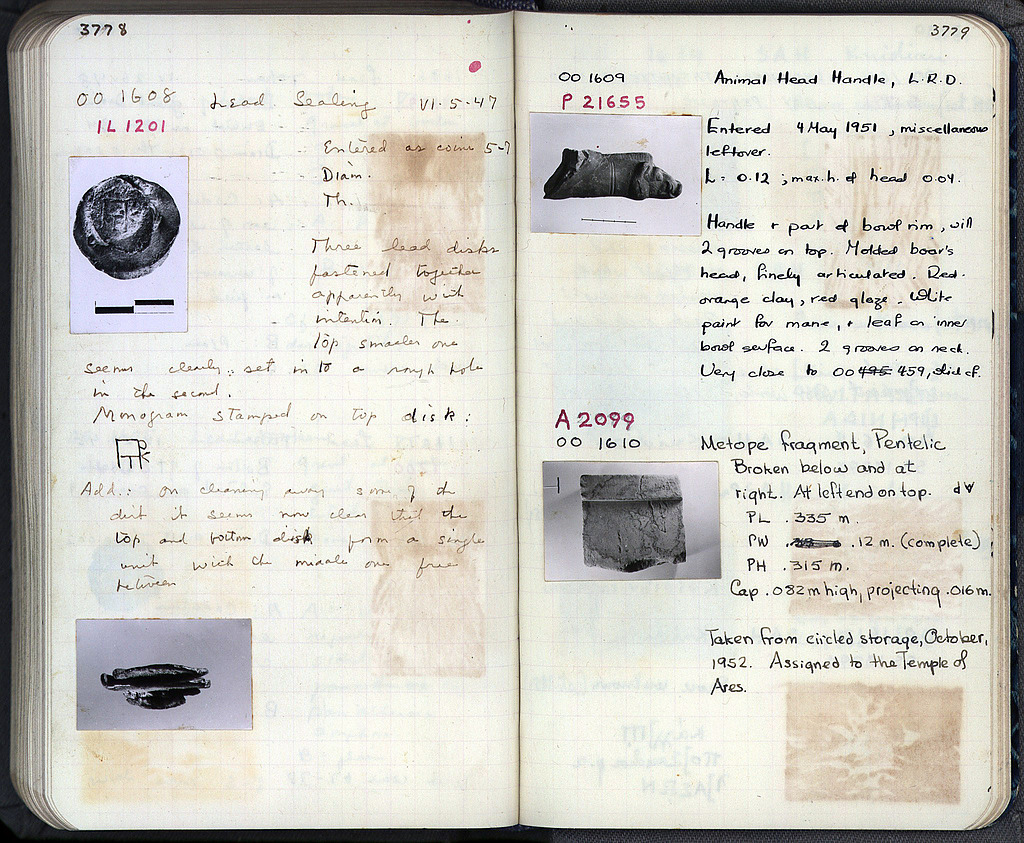 3778
OO 1608 Lead Sealing VI-5-47
IL 1201
Entered as coin 5-7
Diam.
Th.
Three lead disks
fastened together
apparently with
intention. The
top smaller one
seems clearly set into a rough hole
in the second.
Monogram stamped on top disk:
Add.: on cleaning away some of the
dirt it seems now clear that the
top and bottom disk form a single
unit with the middle one free
between
3779
OO 1609 Animal Head Handle, L.R.D.
P 21655
Entered 4 May 1951, miscellaneous
leftover.
L: 0.12; max.h. of head 0.04.
Handle + part of bowl rim, will
2 grooves on top. Molded boar's
head, finely articulated. Red-
orange clay, red glaze. White
paint for mane, + leaf on inner
bowl surface. 2 grooves on neck.
Very close to OO 495 459, did cf.
A 2099
OO 1610 Metope fragment, Pentelic
Broken below and at
right. At left end on top.
PL .335 m.
PW .12 m. (complete)
PH .315 m.
Cap .082 m high, projecting .016 m.
Taken from circled storage, October,
1952. Assigned to the Temple of
Ares.